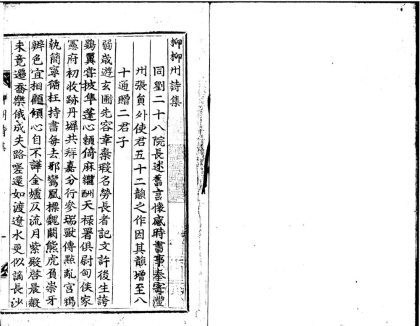 柳柳州詩集
同劉二十八院長述舊言懷感時書事奉寄澧
州張員外使君五十二韻之作因其韻增至八
十通贈二君子
弱歲遊玄圃先容幸棄瑕名勞長者記文許後生誇
鷃翼嘗披隼蓬心類倚麻繼酬天祿署俱尉甸侯家
憲府初收跡丹墀共拜嘉分行參瑞獸傳點亂宮鴉
執簡寧循枉持書每去邪鸞鳳標魏闕熊虎負崇牙
辨色宜相顧傾心自不譁金爐仄流月紫殿啓晨赮
未竟遷喬樂俄成失路嗟還如渡遼水更似謫長沙